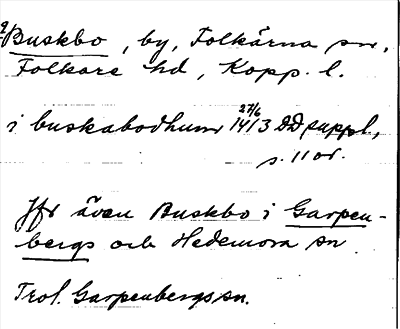 Buskbo, by, Folkärna sn,
Folkare hd, Kopp. l.
i buskabodhum 27/6 1413 DD suppl,
s. 11 or.
Jfr även Buskbo i Garpen-
bergs och Hedemora sn
Trol. Garpenbergs sn.